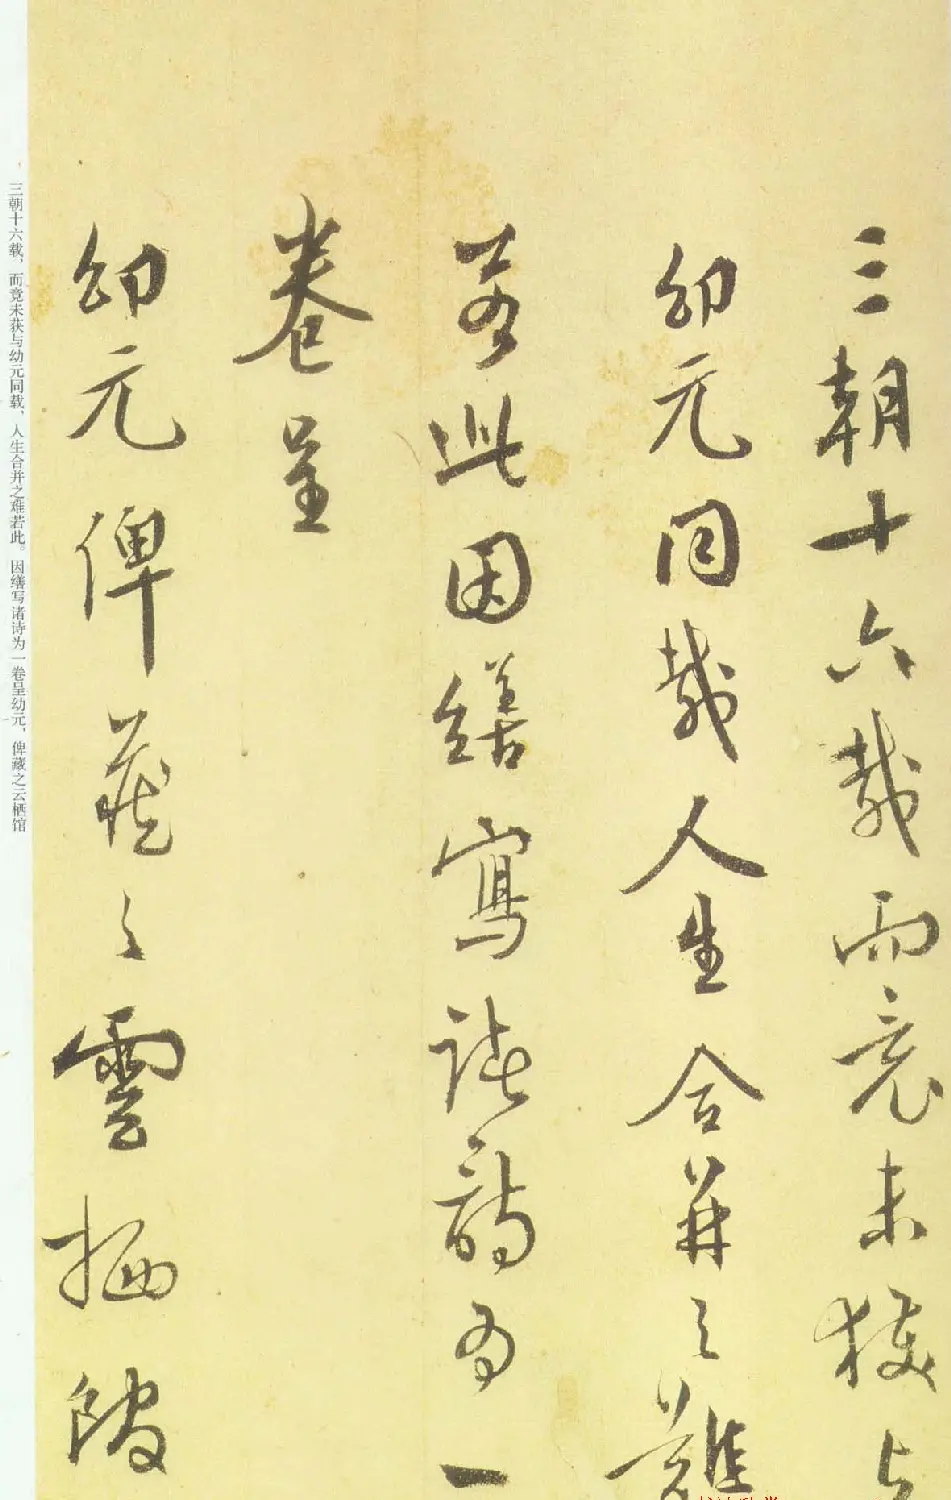 三朝十六載而竟未獲与
幼元同載人生合并之難
若此因繕寫諸詩为一
卷呈
幼元俾藏之雲栖館
三朝十六载，而竟未获与幼元同载，人生合并之难若此。因缮写诸诗为一卷呈幼元，俾藏之云栖馆